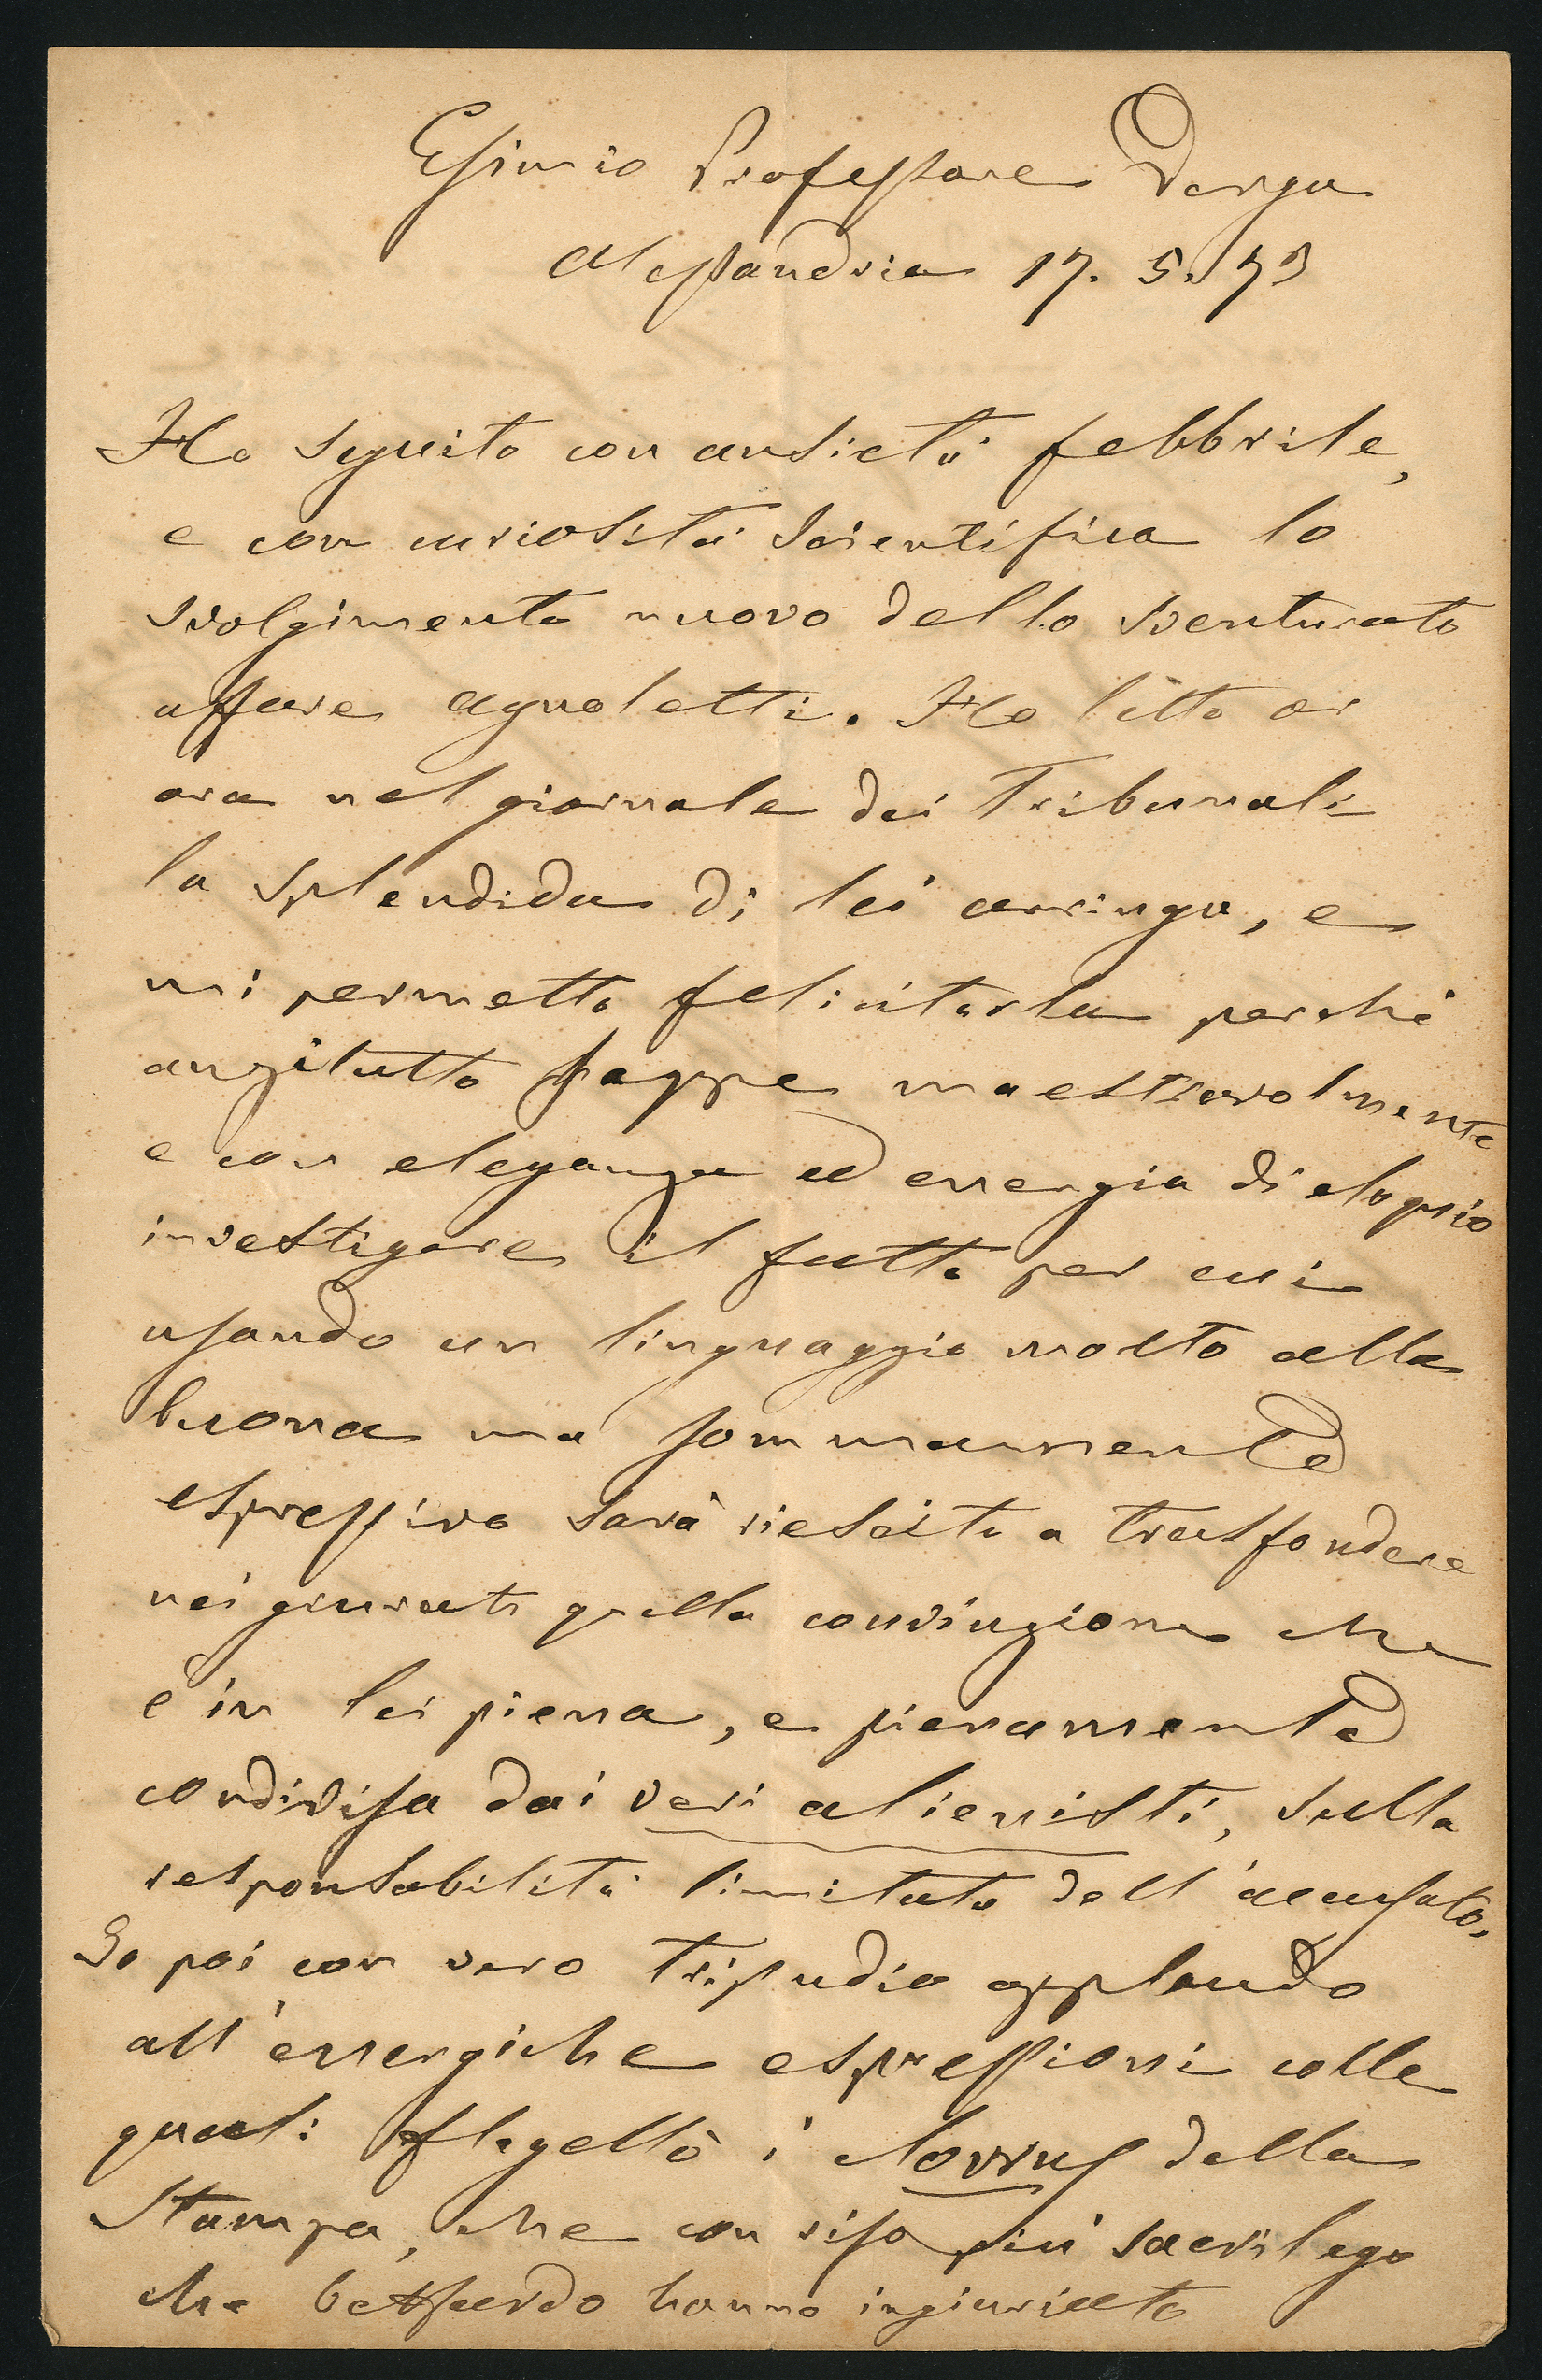 Esimio Professore Verga
Alessandria 17. 5. 73
Ho seguito con ansietà febbrile,
e con curiosità scientifica lo
svolgimento nuovo dello sventurato
affare Agnoletti. Ho letto or
ora nel giornale dei Tribunali
la splendida di lei arringa, e
mi permetto felicitarla perchè
anzitutto seppe maestrevolmente
e con eleganza ed energia di eloquio
investigare il fatto per cui
usando un linguaggio molto alla
buona ma sommamente
espressivo sarà riescito a trasfondere
nei giurati quella convinzione che
è in lei piena, e pienamente
condivisa dai veri alienisti, sulla
responsabilità limitata dell'accusato.
Io poi con vero tripudio applaudo
all'energiche espressioni colle
quali flagellò i clowns della
Stampa, che con riso più sacrilego
che beffardo hanno ingiuriato